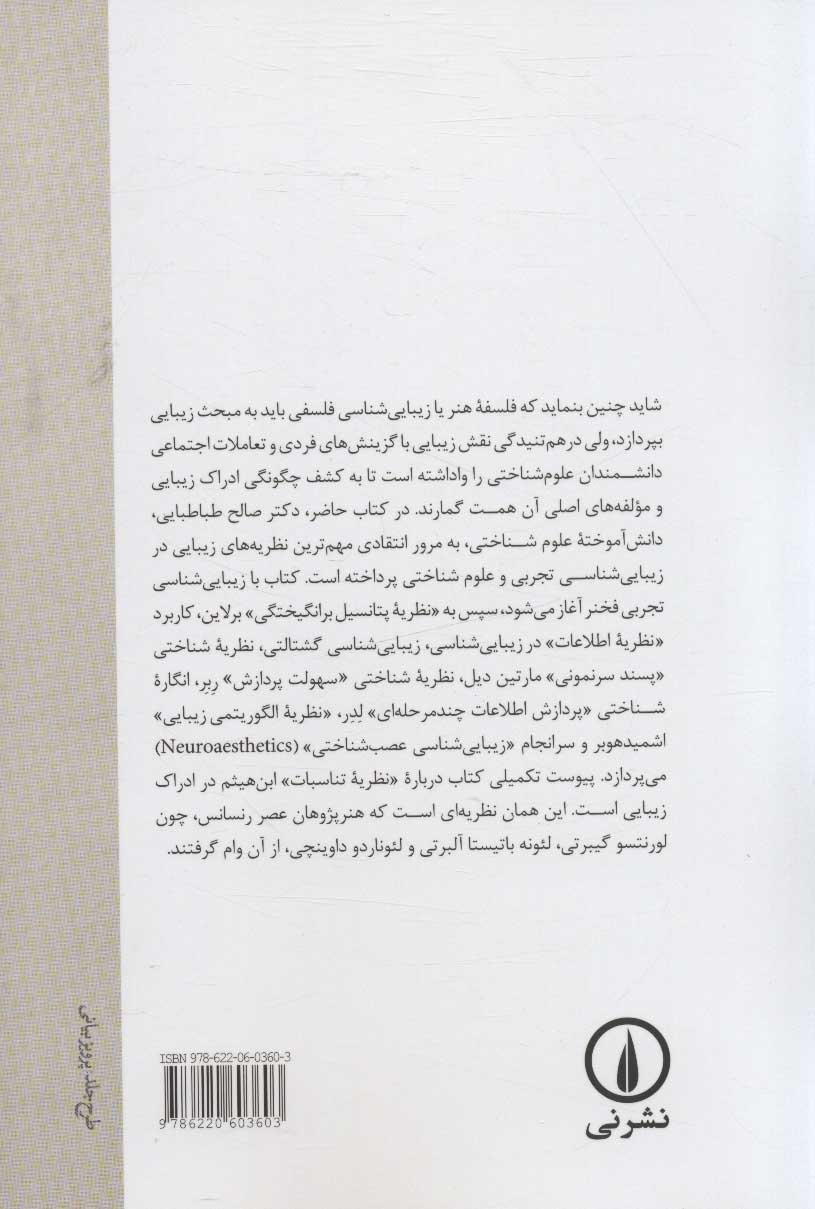 شاید چنین بنماید که فلسفهٔ هنر یا زیبایی‌شناسی فلسفی باید به مبحث زیبایی
بپردازد، ولی درهم‌تنیدگی نقش زیبایی با گزینش‌های فردی و تعاملات اجتماعی
دانشمندان علوم‌شناختی را واداشته است تا به کشف چگونگی ادراک زیبایی
و مؤلفه‌های اصلی آن همت گمارند. در کتاب حاضر، دکتر صالح طباطبایی،
دانش‌آموختهٔ علوم شناختی، به مرور انتقادی مهم‌ترین نظریه‌های زیبایی در
زیبایی‌شناسی تجربی و علوم شناختی پرداخته است. کتاب با زیبایی‌شناسی
تجربی فخنر آغاز می‌شود، سپس به «نظریهٔ پتانسیل برانگیختگی» برلاین، کاربرد
«نظریهٔ اطلاعات» در زیبایی‌شناسی، زیبایی‌شناسی گشتالتی، نظریهٔ شناختی
«پسند سرنمونی» مارتین دیل، نظریهٔ شناختی «سهولت پردازش» رِبِر، انگارهٔ
شناختی «پردازش اطلاعات چندمرحله‌ای» لِدِر، «نظریهٔ الگوریتمی زیبایی»
اشمیدهوبر و سرانجام «زیبایی‌شناسی عصب‌شناختی» (Neuroaesthetics)
می‌پردازد. پیوست تکمیلی کتاب دربارهٔ «نظریهٔ تناسبات» ابن‌هیثم در ادراک
زیبایی است. این همان نظریه‌ای است که هنرپژوهان عصر رنسانس، چون
لورنتسو گیبرتی، لئونه باتیستا آلبرتی و لئوناردو داوینچی، از آن وام گرفتند.
طرح جلد: پرویز بیانی
ISBN 978-622-06-0360-3
9 786220 603603
نشرنی